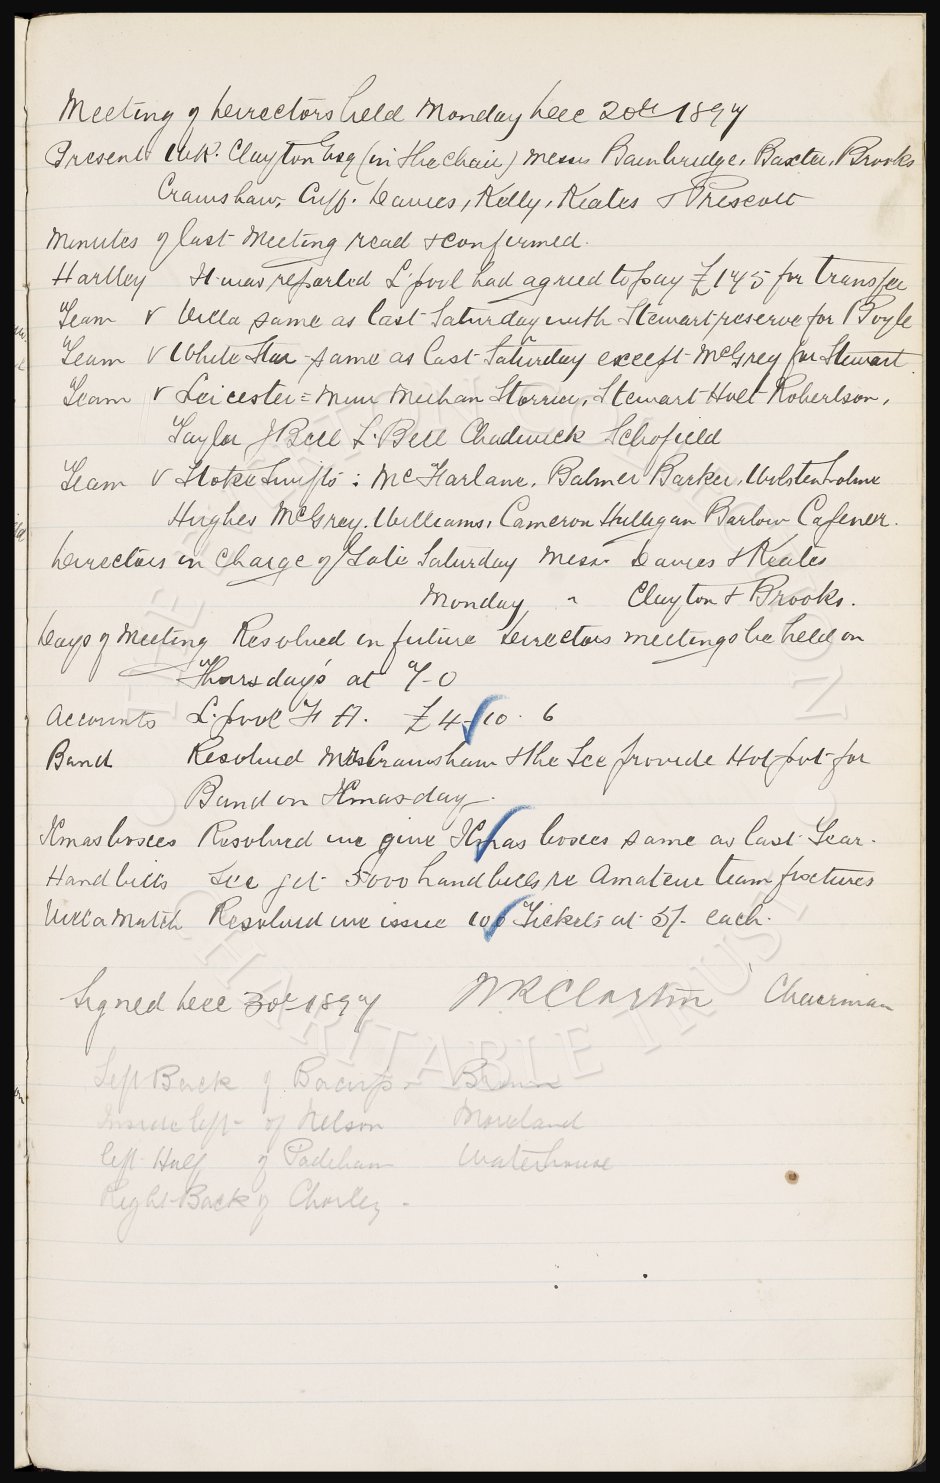 Meeting of Directors held Monday Dec 20th 1897
Present W.R. Clayton Esq (in the Chair) Messrs Bainbridge, Baxter, Brooks
Crawshaw, Cuff, Davies, Kelly, Keates & Prescott
Minutes of last Meeting read & confirmed.
Hartley It was reported L'pool had agreed to pay £175 for transfer
Team v Villa same as last Saturday with Stewart reserve for Boyle
Team v White Star same as last Saturday except McGrey for Stewart.
Team v Leicester = Muir Meehan Storrier, Stewart Holt Robertson,
Taylor J Bell L. Bell Chadwick Schofield
Team v Stoke Swifts : McFarlane, Balmer Barker, Wolstenholme
Hughes McGrey. Williams, Cameron Hulligan Barlow Cafener.
Directors in Charge of Gate Saturday Messrs Davies & Keates
Monday " Clayton & Brooks.
Days of Meeting Resolved in future Directors meetings be held on
Thursday's at 7-0
Accounts L.pool F A. £4-10-6
Band Resolved Mr Crawshaw & the Sec provide Hot-pot for
Band on Xmas day.
Xmas boxes Resolved we give Xmas boxes same as last Year.
Handbills Sec get 5000 handbills re Amateur team fixtures
Villa Match Resolved we issue 100 Tickets at 5/- each.
Signed Dec 30th 1897 W R Clayton Chairman
Left Back of Bacup -
Inside left - of Nelson Moreland
left Half of Padiham Waterhouse
Right Back of Chorley -
CHARITABLE TRUST